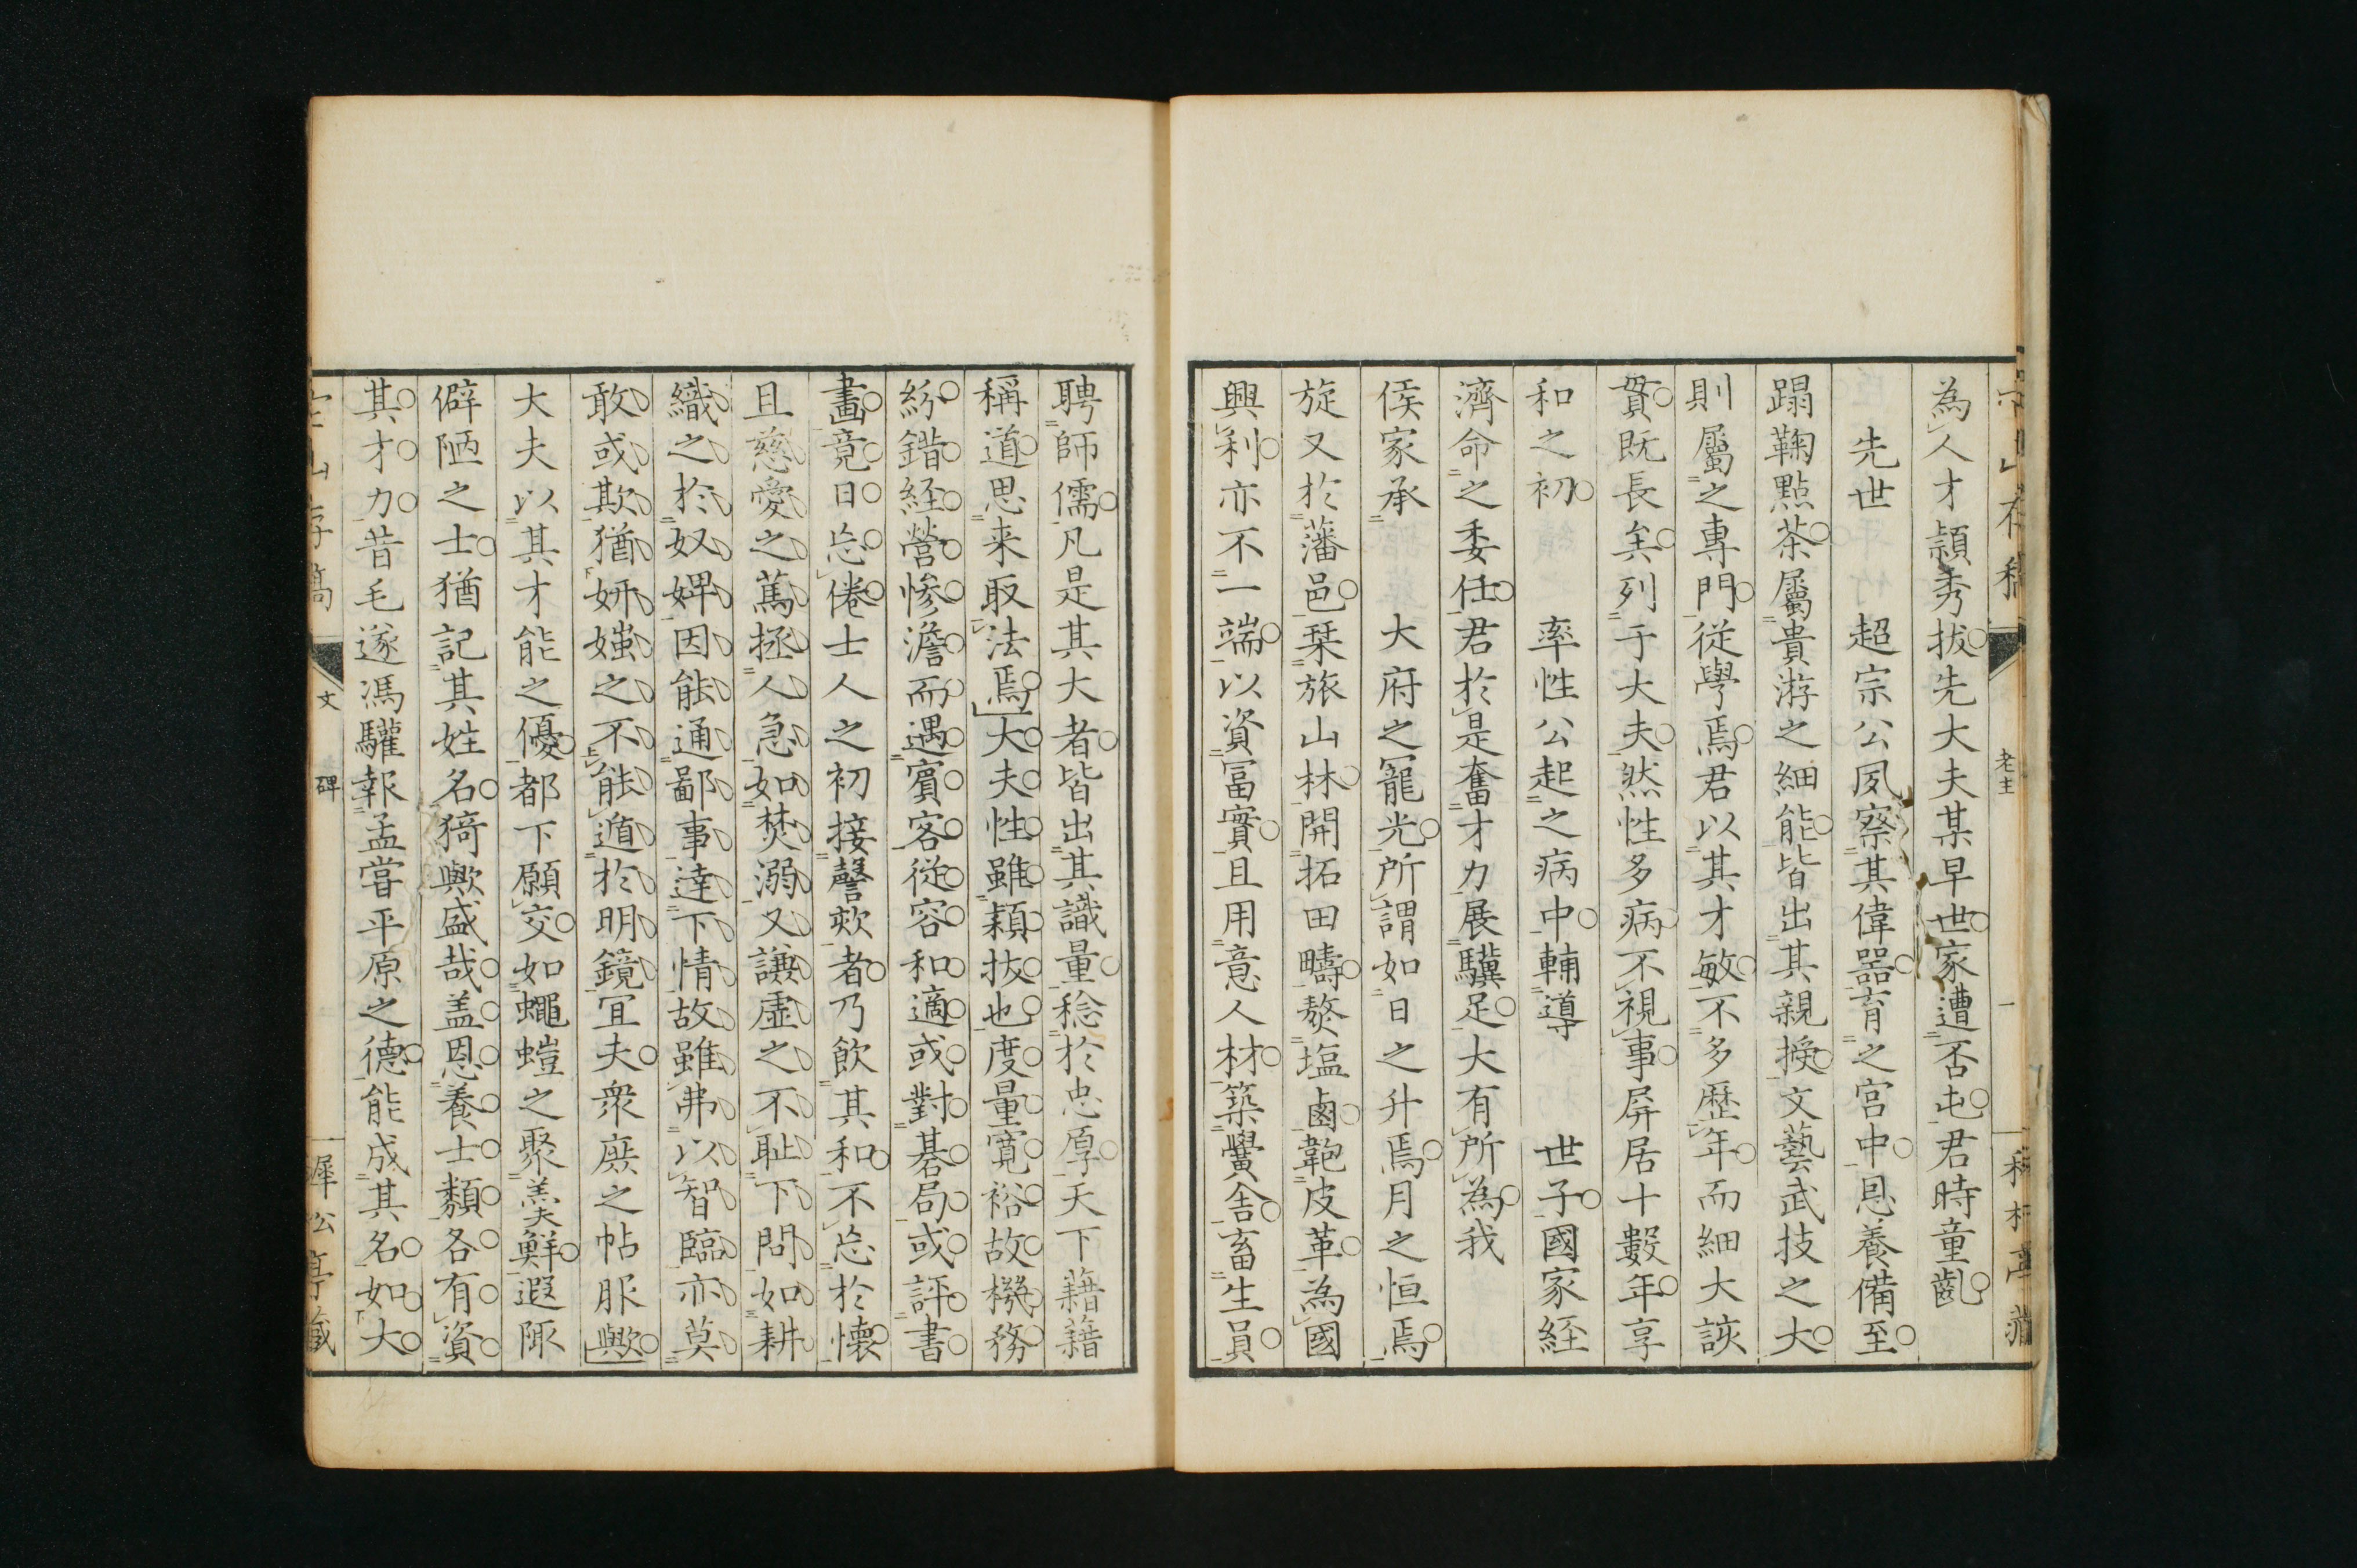 為人才頴秀拔先大夫某早世家遭否屯君時童齓
先世　超宗公夙察其偉器育之宮中恩養備至
蹋鞠點茶屬貴游之細能皆出其親授文藝武技之大
則屬之專門從學焉君以其才敏不多歷年而細大該
貫既長矣列于大夫然性多病不視事屏居十數年享
和之初　率性公起之病中輔導　世子國家経
濟命之委任君於是奮才力展驥足大有所為我
侯家承　大府之寵光所謂如日之升焉月之恒焉
旋又於藩邑栞旅山林開拓田疇熬塩鹵鞄皮革為國
興利亦不一端以資冨實且用意人材築黌舎畜生員
聘師儒凡是其大者皆出其識量稔於忠厚天下藉藉
稱道思来取法焉大夫性雖穎抜也度量寛裕故機務
紛錯経營惨澹而遇賓客従容和適或對棊局或評書
畫竟日忘倦士人之初接謦欬者乃飲其和不忘於懐
且慈愛之篤拯人急如焚溺又謙虚之不耻下問如耕
織之於奴婢因能通鄙事達下情故雖弗以智臨亦莫
敢或欺猶妍媸之不能遁於明鏡宜夫衆庶之帖服歟
大夫以其才能之優都下願交如蠅螘之聚羹鮮遐陬
僻陋之士猶記其姓名猗歟盛哉盖恩養士類各有資
其才力昔毛遂馮驩報孟嘗平原之德能成其名如大
文
碑